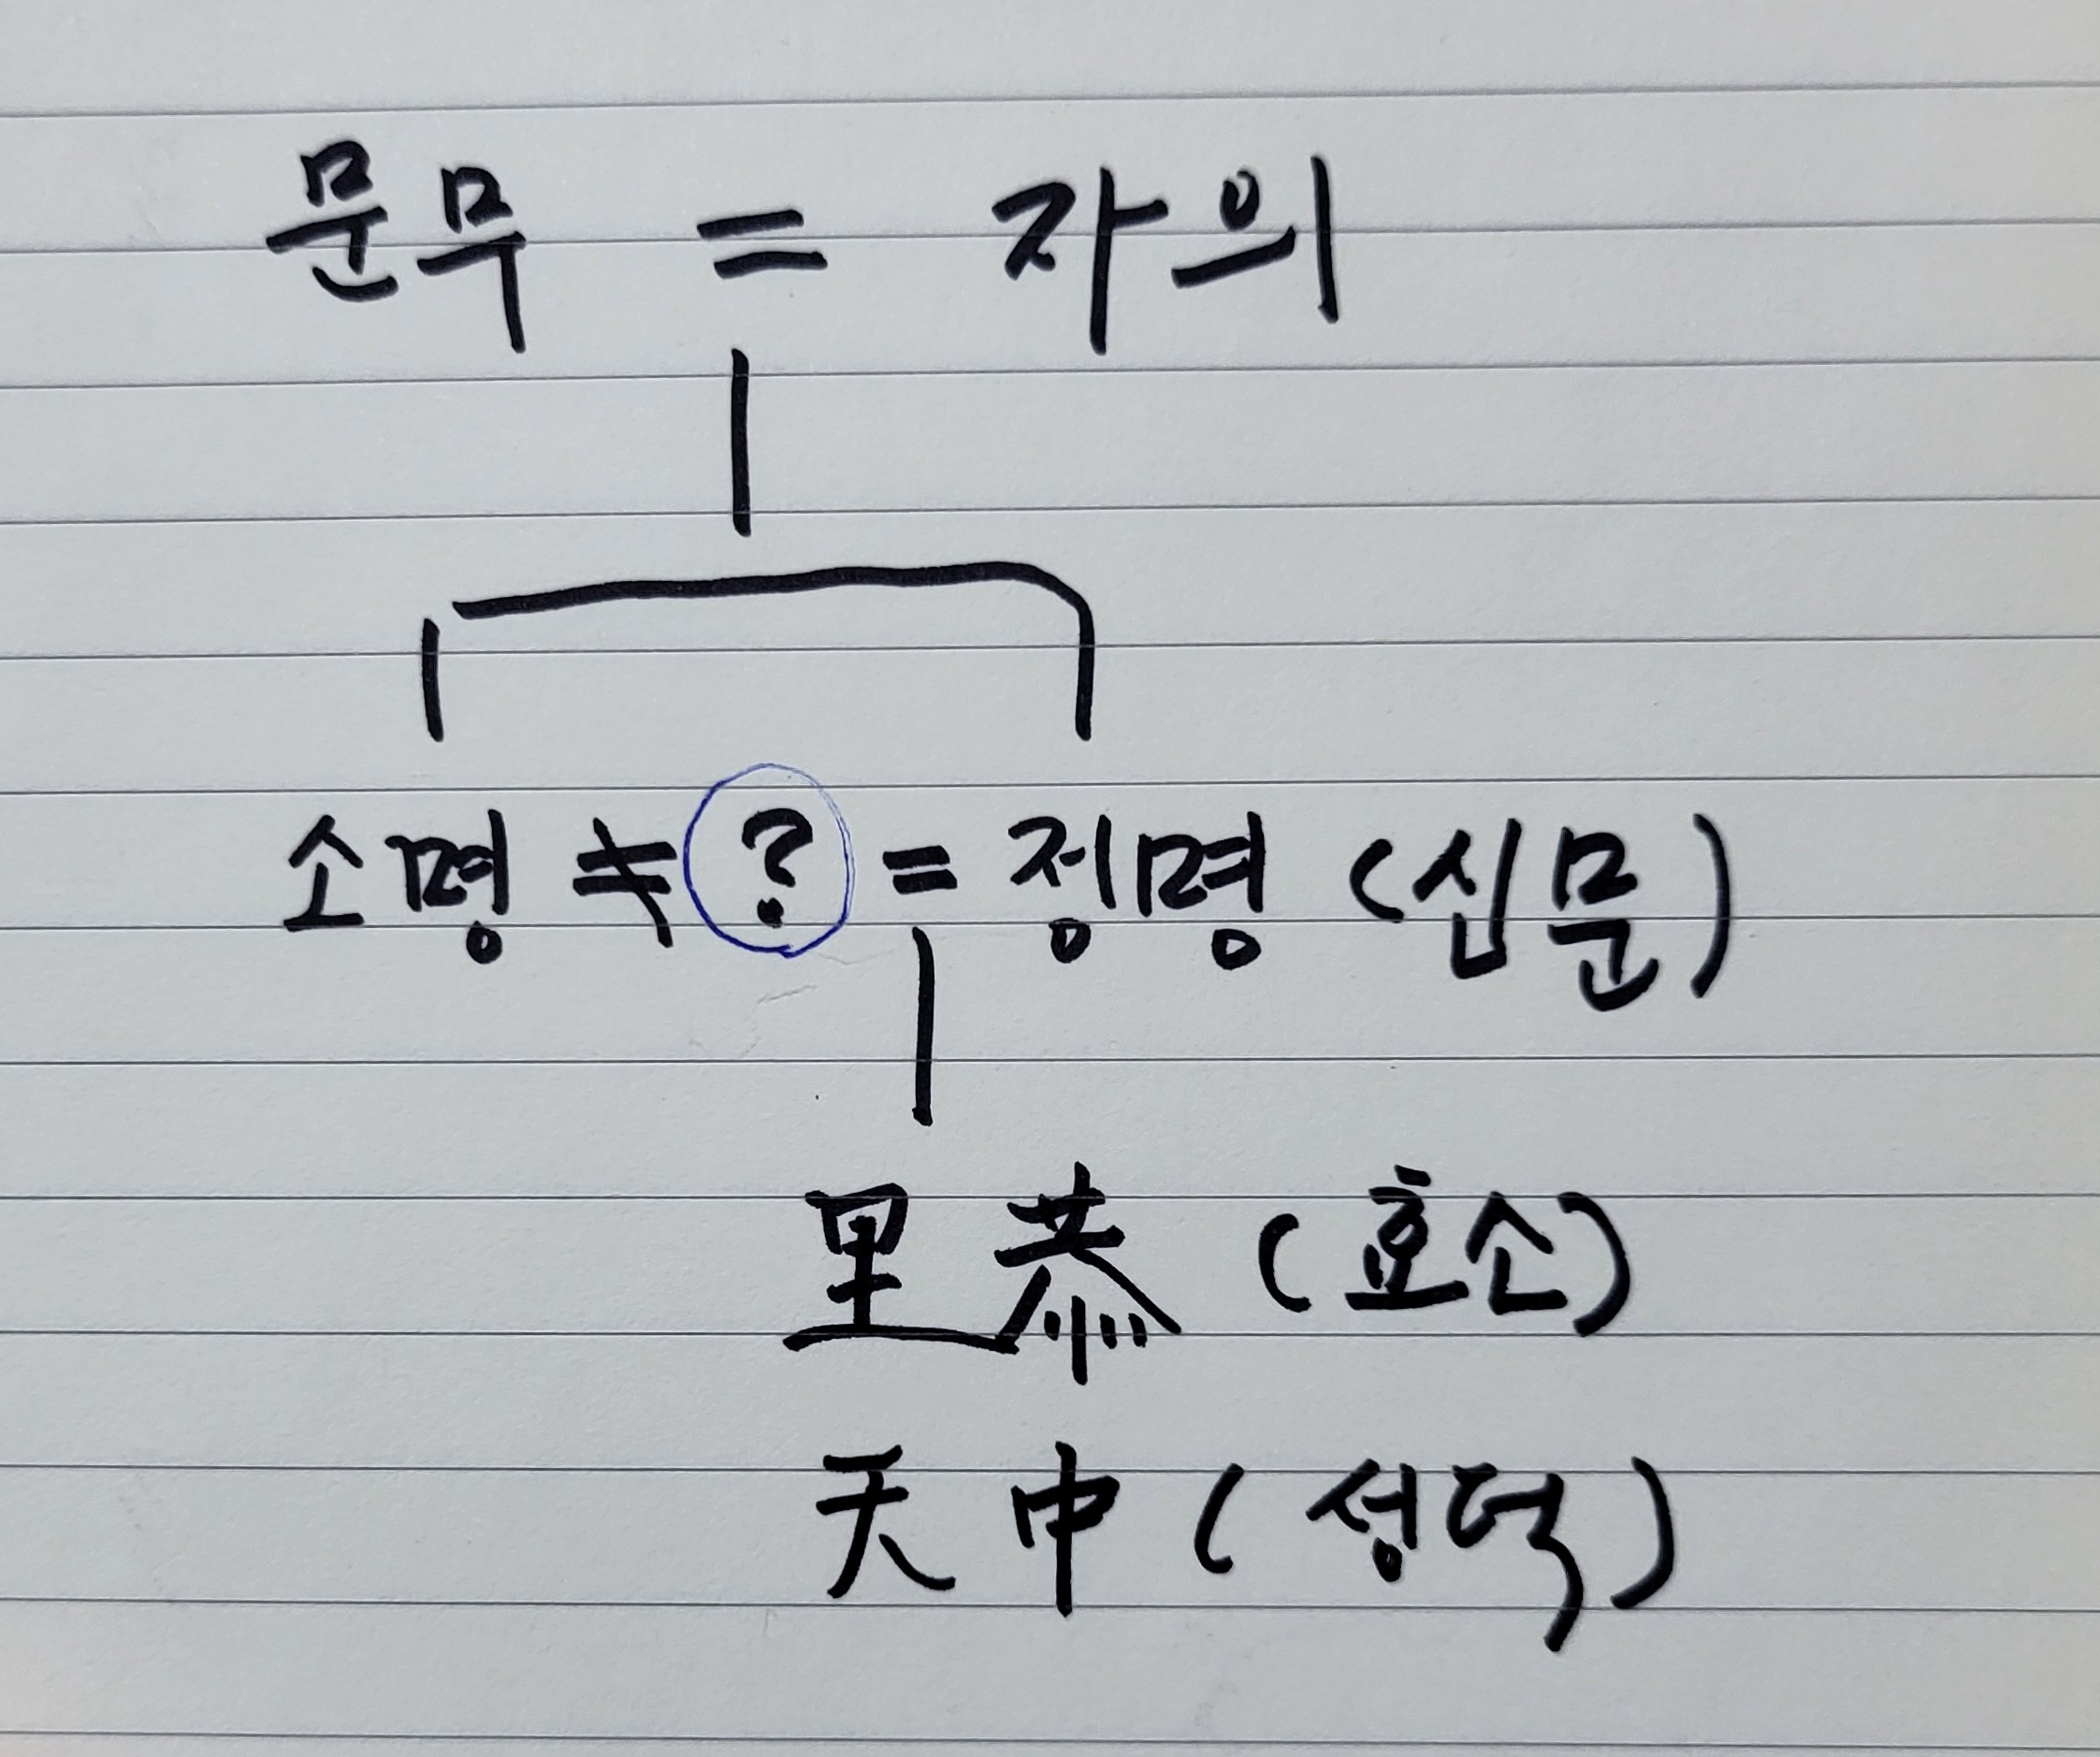 문무 = 자의
소명 ≠ ? = 정명 (신문)
里恭 (효소)
天中 (성덕)